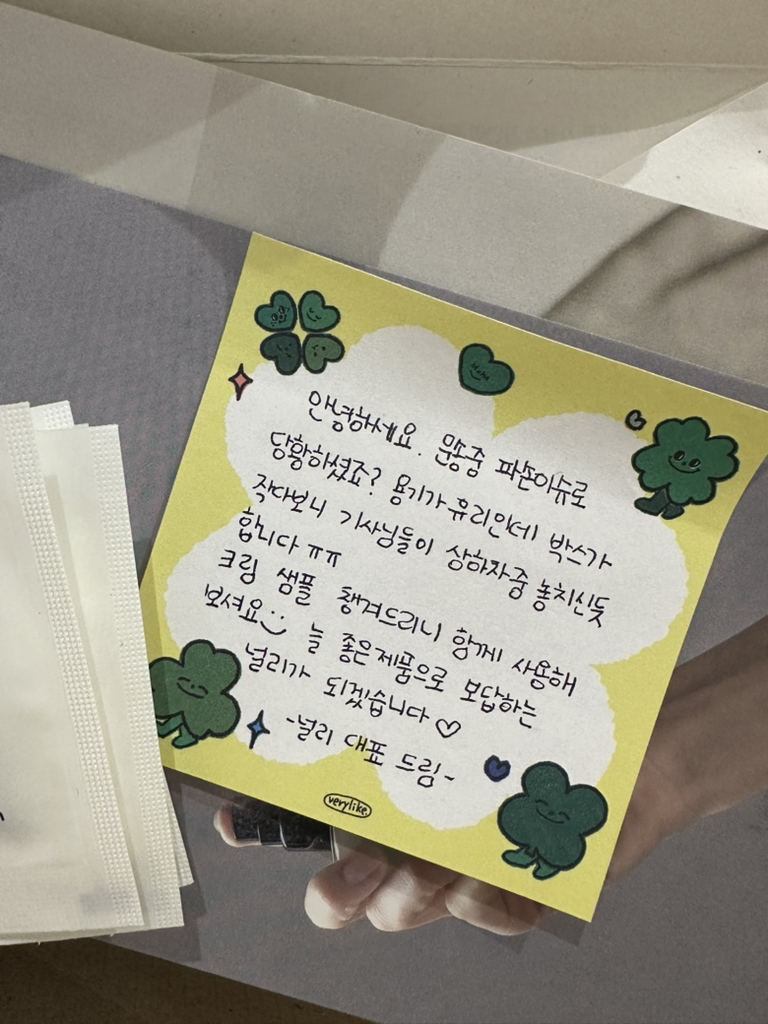 안녕하세요. 운송중 파손이슈로
당황하셨죠? 용기가 유리인데 박스가
작다보니 기사님들이 상하차중 놓치신듯
합니다 ㅠㅠ
크림 샘플 챙겨드리니 함께 사용해
보셔요 늘 좋은제품으로 보답하는
널리가 되겠습니다♡
-널리 대표 드림-
verylike.